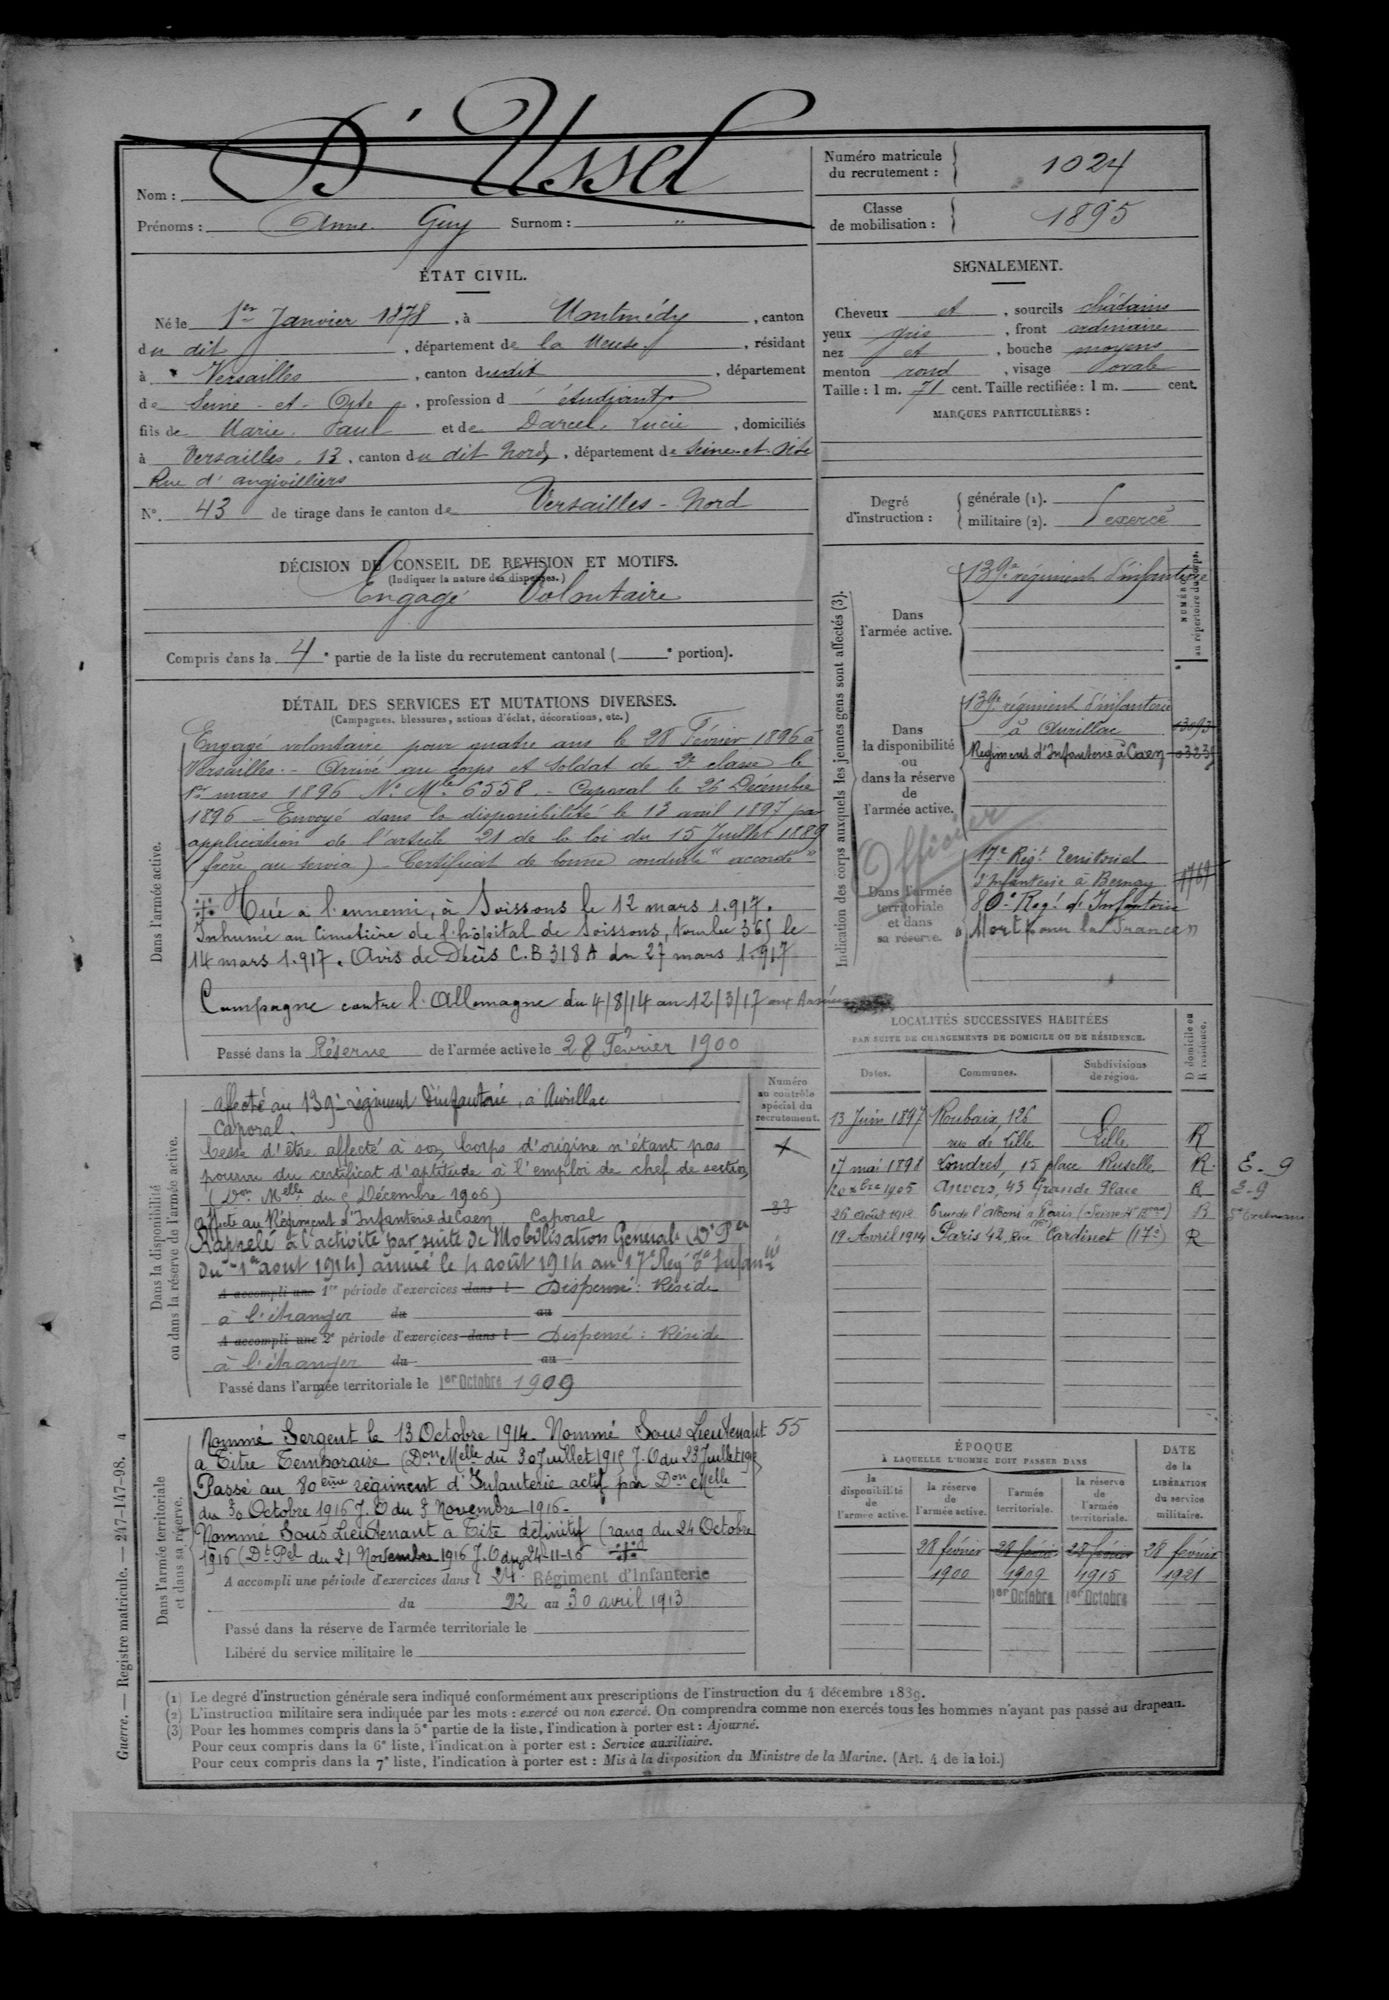 D'Ussel
Nom :
Prénoms : Anne. Guy Surnom : "
Numéro matricule
du recrutement : 1024
Classe
de mobilisation : 1895
ÉTAT CIVIL.
Né le 1er Janvier 1878, à Montmédy, canton
du dit, département de la Meuse, résidant
à Versailles, canton dudit, département
de Seine-et-Oise, profession d étudiant
fils de Marie. Paul et de Darcel, Lucie, domiciliés
à Versailles, 13, canton du dit Nord, département de Seine-et-Oise
Rue d'angivilliers
N° 43 de tirage dans le canton de Versailles-Nord
SIGNALEMENT.
Cheveux et, sourcils châtains
yeux gris, front ordinaire
nez et, bouche moyens
menton rond, visage ovale
Taille : 1 m. 71 cent. Taille rectifiée : 1 m. cent.
MARQUES PARTICULIÈRES :
Degré
d'instruction :
générale (1).
militaire (2). exercé
DÉCISION DU CONSEIL DE REVISION ET MOTIFS.
(Indiquer la nature des dispenses.)
Engagé Volontaire
Compris dans la 4e partie de la liste du recrutement cantonal ( e portion).
DÉTAIL DES SERVICES ET MUTATIONS DIVERSES.
(Campagnes, blessures, actions d'éclat, décorations, etc.)
Dans l'armée active.
Engagé volontaire pour quatre ans le 28 Février 1896 à
Versailles.- Arrivé au corps et Soldat de 2e classe le
1er mars 1896 No Mle 6558.- Caporal le 26 Décembre
1896 - Envoyé dans la disponibilité le 13 avril 1897 par
application de l'article 21 de la loi du 15 Juillet 1889
(frère au service) - Certificat de bonne conduite "accordé"
Tué a l'ennemi, à Soissons le 12 mars 1.917.
Inhumé au Cimetière de l'hôpital de Soissons, tombe 365 le
14 mars 1.917. Avis de Décès C.B 318 A du 27 mars 1.917
Campagne contre l'Allemagne du 4/8/14 au 12/3/17 aux Armées
Passé dans la Réserve de l'armée active le 28 Février 1900
Indication des corps auxquels les jeunes gens sont affectés (3).
NUMÉRO
au répertoire du corps.
Dans
l'armée active.
139e régiment d'infanterie
Dans
la disponibilité
ou
dans la réserve
de
l'armée active.
139e régiment d'infanterie
à Aurillac 13093
Régiment d'Infanterie à Caen
Officier
Dans l'armée
territoriale
et dans
sa réserve.
17e Régt Territorial
d'Infanterie à Bernay
80e Régt d'Infanterie
"Mort pour la France"
LOCALITÉS SUCCESSIVES HABITÉES
PAR SUITE DE CHANGEMENTS DE DOMICILE OU DE RÉSIDENCE.
Dates. Communes. Subdivisions
de région.
D domicile ou
R résidence.
13 Juin 1897 Roubaix, 126
rue de Lille Lille R
17 mai 1898 Londres, 15 place Ruselle R. E-9
1905 Anvers, 43 Grande Place R E-9
26 août 1912
19 Avril 1914 Paris 42, Rue Cardinet (17e) R
Dans la disponibilité
ou dans la réserve de l'armée active.
Numéro
au contrôle
spécial du
recrutement.
Affecté au 139e régiment d'infanterie, à Aurillac
Caporal.
Cesse d'être affecté à son Corps d'origine n'étant pas
pourvu du certificat d'aptitude à l'emploi de chef de section
(Don Melle du Décembre 1906)
Affecté au Régiment d'Infanterie de Caen Caporal 33
Rappelé à l'activité par suite de Mobilisation Générale (
du 1er aout 1914) arrivé le 4 août 1914 au 17e Régt Tal Infanterie
A accompli une 1re période d'exercices dans l Dispensé : Réside
à l'étranger du au
A accompli une 2e période d'exercices dans l Dispensé : Réside
à l'étranger du au
Passé dans l'armée territoriale le 1er Octobre 1909
Dans l'armée territoriale
et dans sa réserve.
Nommé Sergent le 13 Octobre 1914. Nommé Sous Lieutenant 55
a Titre Temporaire (Don Melle du 30 Juillet 1915 J.O du 23 Juillet 1915
Passé au 80ème régiment d'Infanterie actif par Don Melle
du 30 Octobre 1916 J.O du 3 Novembre 1916-
Nommé Sous Lieutenant a Titre définitif (rang du 24 Octobre
1916 (Dt Pel du 21 Novembre 1916 J.O du 24-11-16
A accompli une période d'exercices dans l 24e Régiment d'Infanterie
du 22 au 30 avril 1913
Passé dans la réserve de l'armée territoriale le
Libéré du service militaire le
ÉPOQUE
À LAQUELLE L'HOMME DOIT PASSER DANS
DATE
de la
LIBÉRATION
du service
militaire.
la
disponibilité
de
l'armée active.
la réserve
de
l'armée active.
l'armée
territoriale.
la réserve
de
l'armée
territoriale.
28 février 28 février 28 février 28 février
1900 1909 1915 1921
1er Octobre 1er Octobre
Guerre. — Registre matricule. — 247-147-98. 4
(1) Le degré d'instruction générale sera indiqué conformément aux prescriptions de l'instruction du 4 décembre 1889.
(2) L'instruction militaire sera indiquée par les mots : exercé ou non exercé. On comprendra comme non exercés tous les hommes n'ayant pas passé au drapeau.
(3) Pour les hommes compris dans la 5e partie de la liste, l'indication à porter est : Ajourné.
Pour ceux compris dans la 6e liste, l'indication à porter est : Service auxiliaire.
Pour ceux compris dans la 7e liste, l'indication à porter est : Mis à la disposition du Ministre de la Marine. (Art. 4 de la loi.)